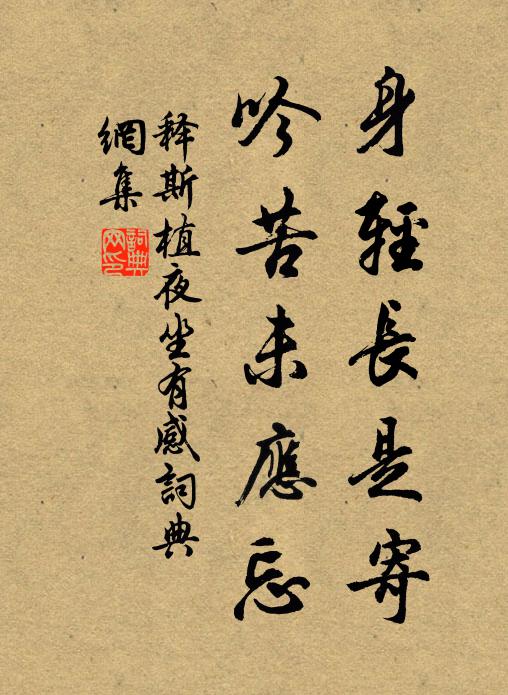 身輕長是寄
吟苦未應忘
释斯植夜坐有感詞典
網集
詞典
网印